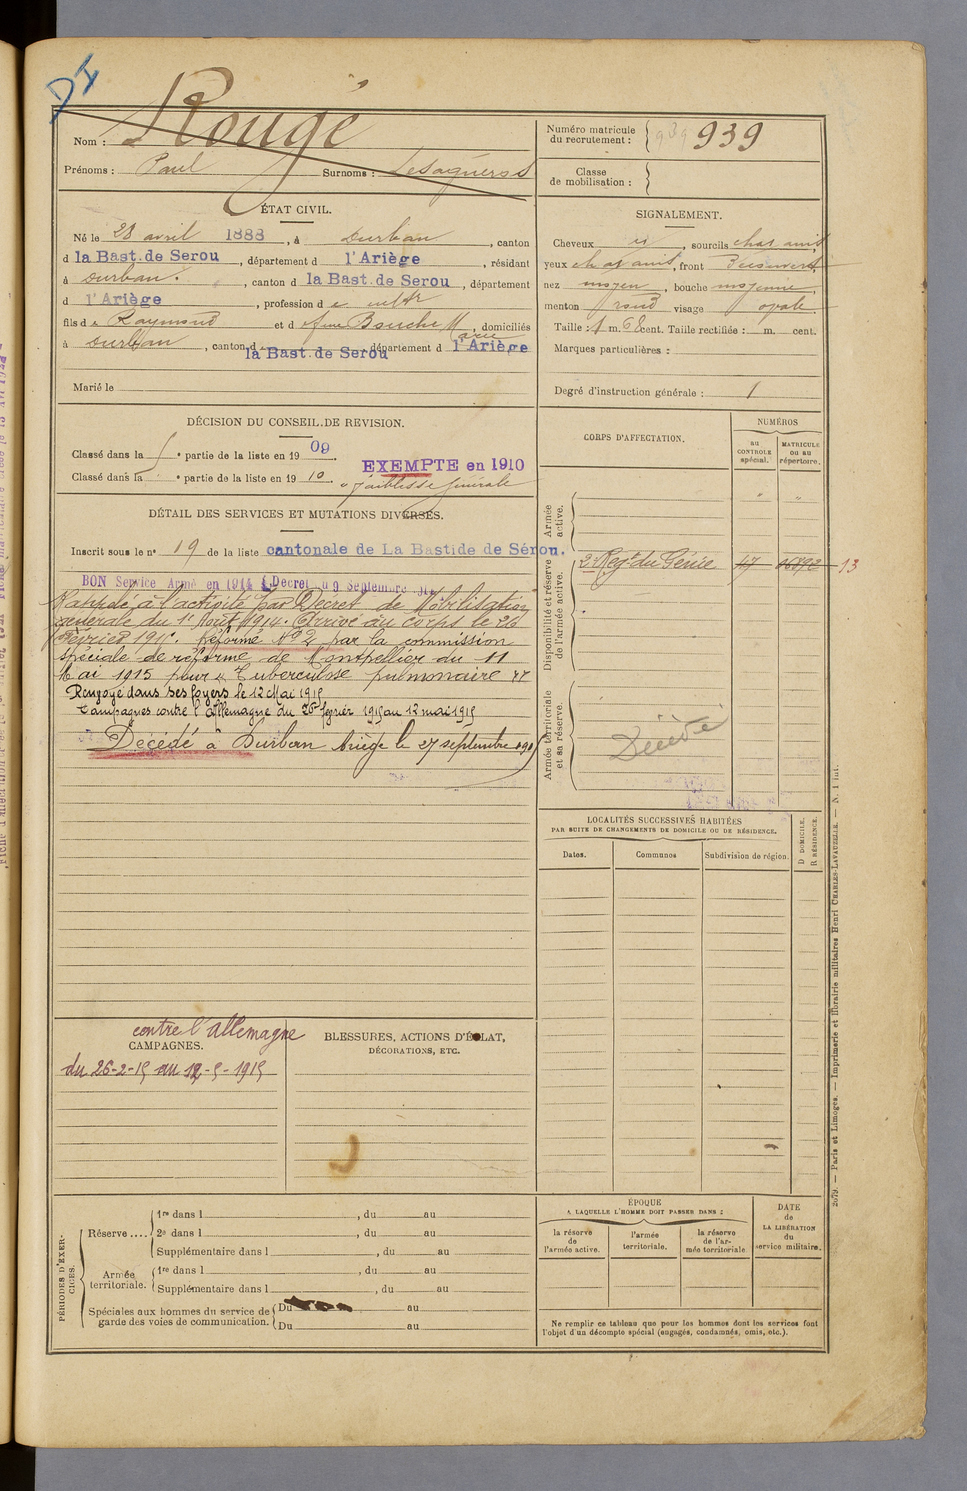 DI
Nom : Rougé
Prénoms : Paul Surnoms : Lesaqueros
Numéro matricule du recrutement : 939 939
Classe de mobilisation :
ÉTAT CIVIL.
Né le 23 avril 1888, à Durban, canton
d la Bast. de Serou, département d l'Ariège, résidant
à Durban, canton d la Bast. de Serou, département
d l'Ariège, profession d e cultr
fils d e Raymond et d e feue Bouche Marie, domiciliés
à Durban, canton d la Bast. de Serou département d l'Ariège
Marié le
SIGNALEMENT.
Cheveux, sourcils
yeux, front
nez moyen, bouche moyenne,
menton rond visage ovale
Taille : 1 m. 62 cent. Taille rectifiée : m. cent.
Marques particulières :
Degré d'instruction générale : 1
DÉCISION DU CONSEIL DE REVISION.
Classé dans la 5e partie de la liste en 1909.
Classé dans la e partie de la liste en 1910 EXEMPTÉ en 1910
"faiblesse générale
DÉTAIL DES SERVICES ET MUTATIONS DIVERSES.
Inscrit sous le n° 19 de la liste cantonale de La Bastide de Sérou.
BON Service Armé en 1914 (Decret du 9 Septembre 1914
Rappelé à l'activité par Décret de Mobilisation
générale du 1er Aout 1914. Arrivé au corps le 26
Février 1915. Réformé N°2 par la commission
spéciale de réforme de Montpellier du 11
Mai 1915 pour "Tuberculose pulmonaire"
Renvoyé dans ses foyers le 12 Mai 1915
Campagnes contre l'Allemagne du 26 fevrier 1915 au 12 mai 1915
Décédé à Durban Ariège le 27 septembre
CORPS D'AFFECTATION.
NUMÉROS
au CONTROLE spécial.
MATRICULE ou au répertoire.
Armée active.
Disponibilité et réserve de l'armée active.
2e Regt du Génie 47 16892 13
Armée territoriale et sa réserve.
Décédé
LOCALITÉS SUCCESSIVES HABITÉES
PAR SUITE DE CHANGEMENTS DE DOMICILE OU DE RÉSIDENCE.
Dates. Communes Subdivision de région. D DOMICILE. R RÉSIDENCE.
contre l'Allemagne
CAMPAGNES.
du 26-2-15 au 12-5-1915
BLESSURES, ACTIONS D'ÉCLAT,
DÉCORATIONS, ETC.
PÉRIODES D'EXERCICES.
Réserve.... 1re dans l , du au
2e dans l , du au
Supplémentaire dans l , du au
Armée territoriale. 1re dans l , du au
Supplémentaire dans l , du au
Spéciales aux hommes du service de garde des voies de communication. Du au
Du au
ÉPOQUE
A LAQUELLE L'HOMME DOIT PASSER DANS :
la réserve de l'armée active.
l'armée territoriale.
la réserve de l'armée territoriale
DATE de LA LIBÉRATION du service militaire.
Ne remplir ce tableau que pour les hommes dont les services font
l'objet d'un décompte spécial (engagés, condamnés, omis, etc.).
2079. — Paris et Limoges. — Imprimerie et librairie militaires Henri CHARLES-LAVAUZELLE. — N. 1 int.